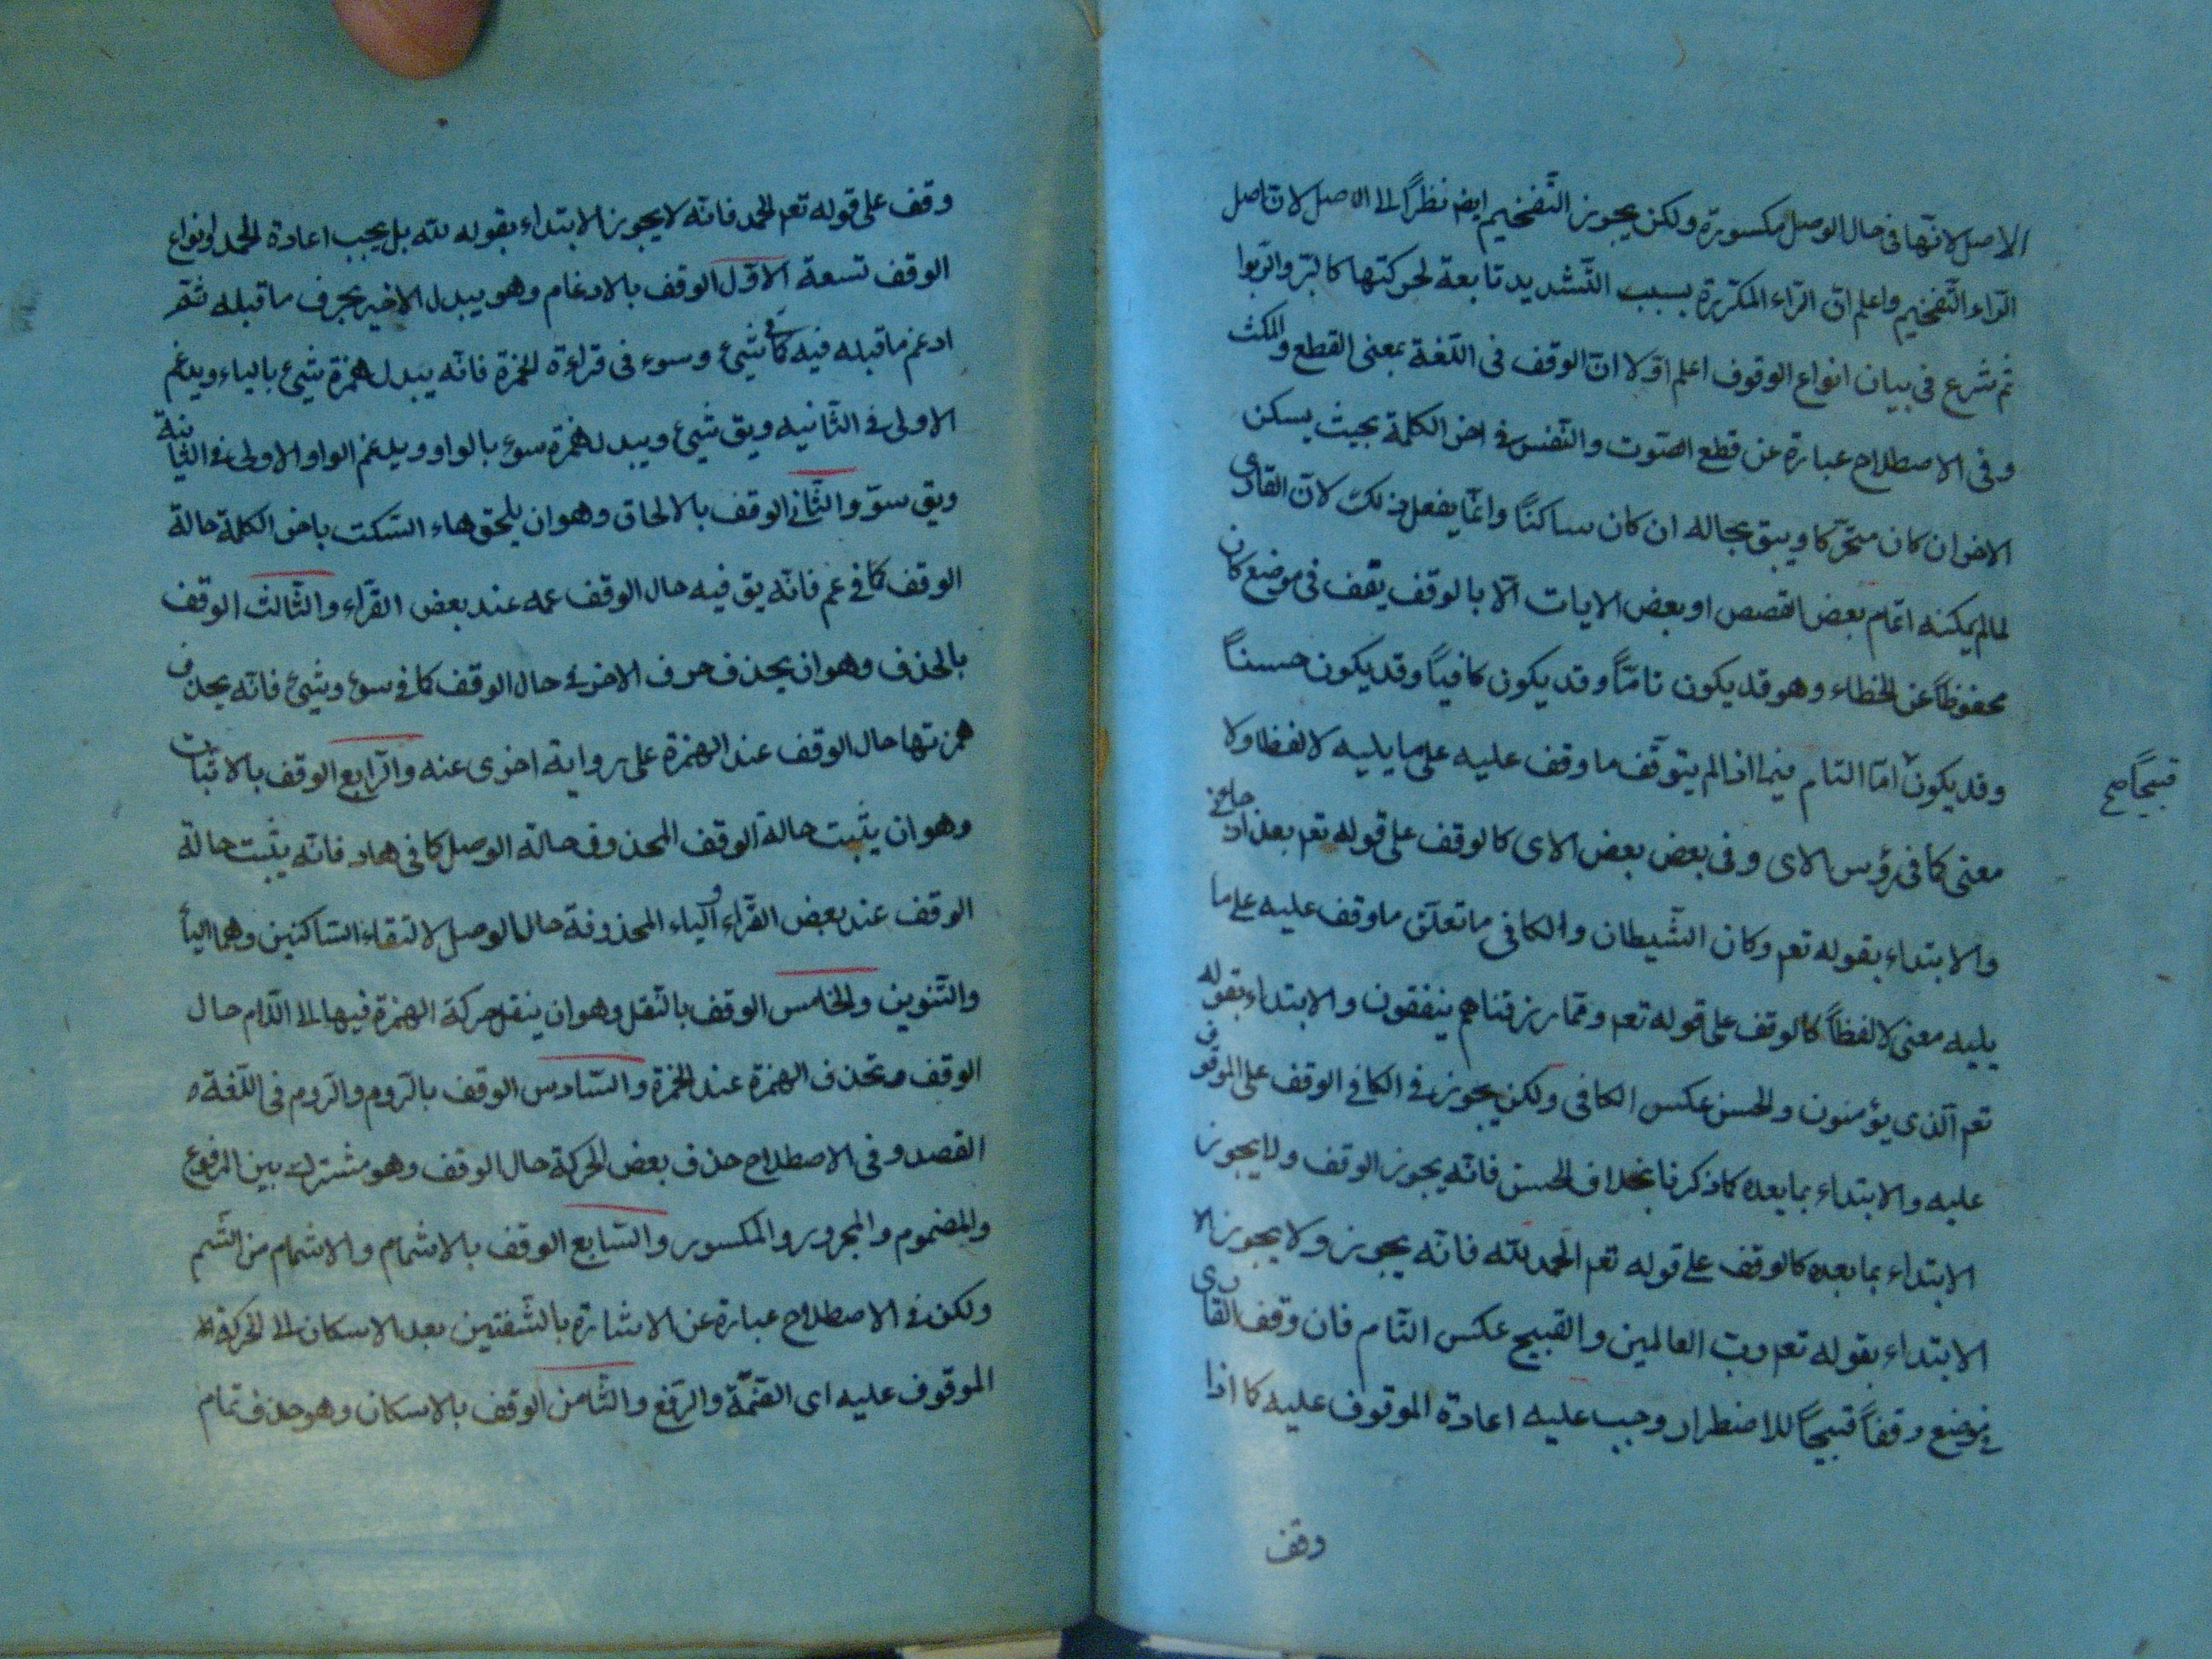 الاصل لانّها فى حال الوصل مكسورة ولكن يجوز التّفخيم ايضا نظرًا الى الاصل لانّ اصل
الرّاء التّفخيم واعلم انّ الرّاء المكرّرة بسبب التّشديد تابعة لحركتها كالبرّ والرّبوا
ثم شرع فى بيان انواع الوقوف اعلم اوّلا انّ الوقف فى اللّغة بمعنى القطع والمكث
وفى الاصطلاح عبارة عن قطع الصّوت والنّفس فى اخر الكلمة بحيث يسكن
الاخر ان كان متحرّكا ويبقى بحاله ان كان ساكنًا وانّما يفعل ذلك لانّ القارى
لما لم يمكنه اتمام بعض القصص او بعض الايات الّا بالوقف يقف فى موضع كان
محفوظاً عن الخطاء وهو قد يكون تامّاً وقد يكون كافياً وقد يكون حسناً
وقد يكون امّا التام فيما اذا لم يتوقّف ما وقف عليه على ما يليه لا لفظا ولا
قبيحاً صح
معنى كما فى رؤس الاى وفى بعض بعض الاى كالوقف على قوله تعم بعد اذ جاءنى
والابتداء بقوله تعم وكان الشّيطان والكافى ما تعلّق ما وقف عليه على ما
يليه معنى لا لفظاً كالوقف على قوله تعم وممّا رزقناهم ينفقون والابتداء بقوله
تعم الّذى يؤمنون والحسن عكس الكافى ولكن يجوز فى الكافى الوقف على الموقوف
عليه والابتداء بما بعده كما ذكرنا بخلاف الحسن فانّه يجوز الوقف ولا يجوز
الابتداء بما بعده كالوقف على قوله تعم الحمد للّه فانّه يجوز ولا يجوز الا
الابتداء بقوله تعم رب العالمين والقبيح عكس التّام فان وقف القارى
فى موضع وقفاً قبيحاً للاضطرار وجب عليه اعادة الموقوف عليه كما اذا
وقف
وقف على قوله تعم الحمد فانّه لا يجوز الابتداء بقوله للّه بل يجب اعادة الحمد وانواع
الوقف تسعة الاوّل الوقف بالادغام وهو يبدل الاخير بحرف ما قبله ثمّ
ادغم ما قبله فيه كما فى شىء وسوء فى قراءة الحمزة فانّه يبدل همزة شىء بالياء ويدغم
الاولى فى الثّانيه ويق شىّ ويبدل همزة سوء بالواو ويدغم الواو الاولى فى الثّانية
ويق سوّ والثّانى الوقف بالالحاق وهو ان يلحق هاء السّكت باخر الكلمة حالة
الوقف كما فى عم فانّه يق فيه حال الوقف عمه عند بعض القرّاء والثّالث الوقف
بالحذف وهو ان يحذف حرف الاخر فى حال الوقف كما فى سوء وشىء فانّه يحذف
همزتها حال الوقف عند الهمزة على رواية اخرى عنه والرّابع الوقف بالاثبات
وهو ان يثبت حالة الوقف المحذوف حالة الوصل كما فى هاد فانّه يثبت حالة
الوقف عند بعض القرّاء الياء المحذوفة حال الوصل لالتقاء السّاكنين وهما اليأ
والتّنوين والخامس الوقف بالنّقل وهو ان ينقل حركة الهمزة فيها الى اللّام حال
الوقف وتحذف الهمزة عند الحمزة والسّادس الوقف بالرّوم والرّوم فى اللّغة
القصد وفى الاصطلاح حذف بعض الحركة حال الوقف وهو مشترك بين المرفوع
والمضموم والمجرور والمكسور والسّابع الوقف بالاشمام والاشمام من الشّم
ولكن فى الاصطلاح عبارة عن الاشارة بالشّفتين بعد الاسكان الى الحركة
الموقوف عليه اى الضّمّة والرّفع والثّامن الوقف بالاسكان وهو حذف تمام